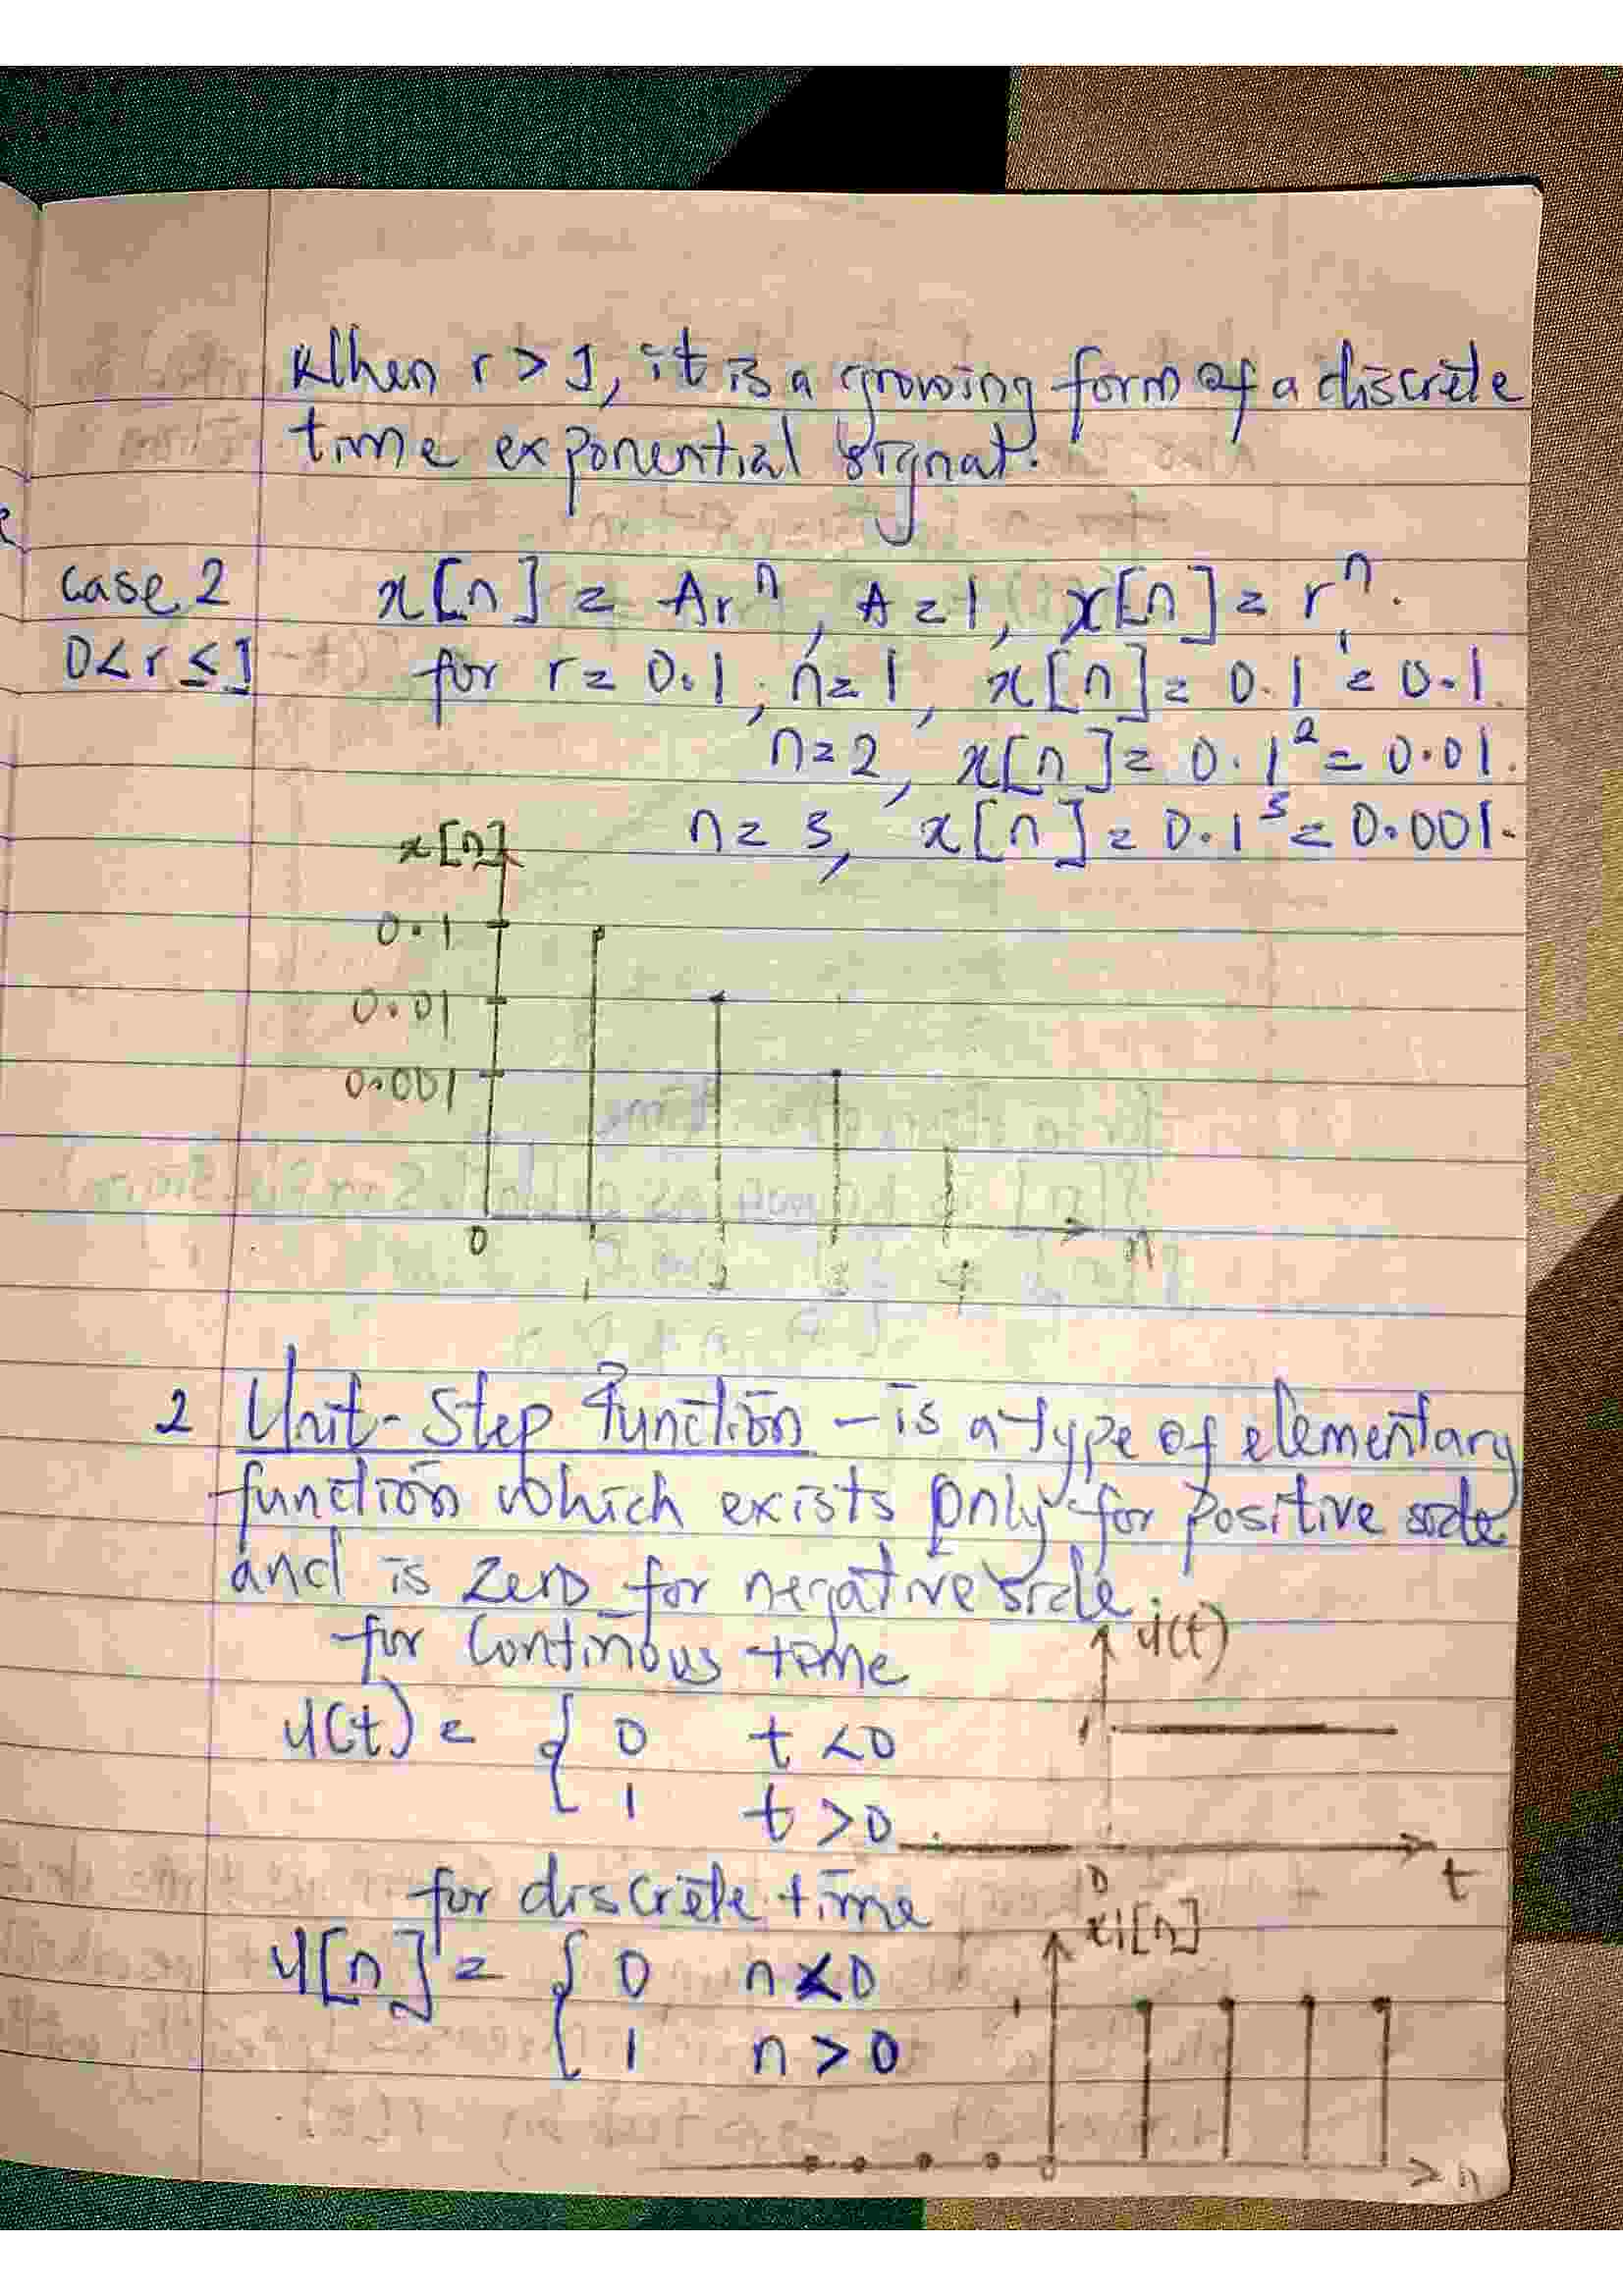 When r > 1, it is a growing form of a discrete
time exponential signal.
case 2 x[n] = Arⁿ, A = 1, x[n] = rⁿ.
0 < r ≤ 1 for r = 0.1, n = 1, x[n] = 0.1¹ = 0.1
n = 2, x[n] = 0.1² = 0.01.
n = 3, x[n] = 0.1³ = 0.001.
x[n]
0.1
0.01
0.001
0 n
1 2 3 4
2 Unit-Step Function – is a type of elementary
function which exists only for positive side
and is zero for negative side.
for continous time u(t)
u(t) = { 0 t < 0 1
1 t > 0
0 t
for discrete time
u[n] = { 0 n < 0 1
1 n > 0
0 n